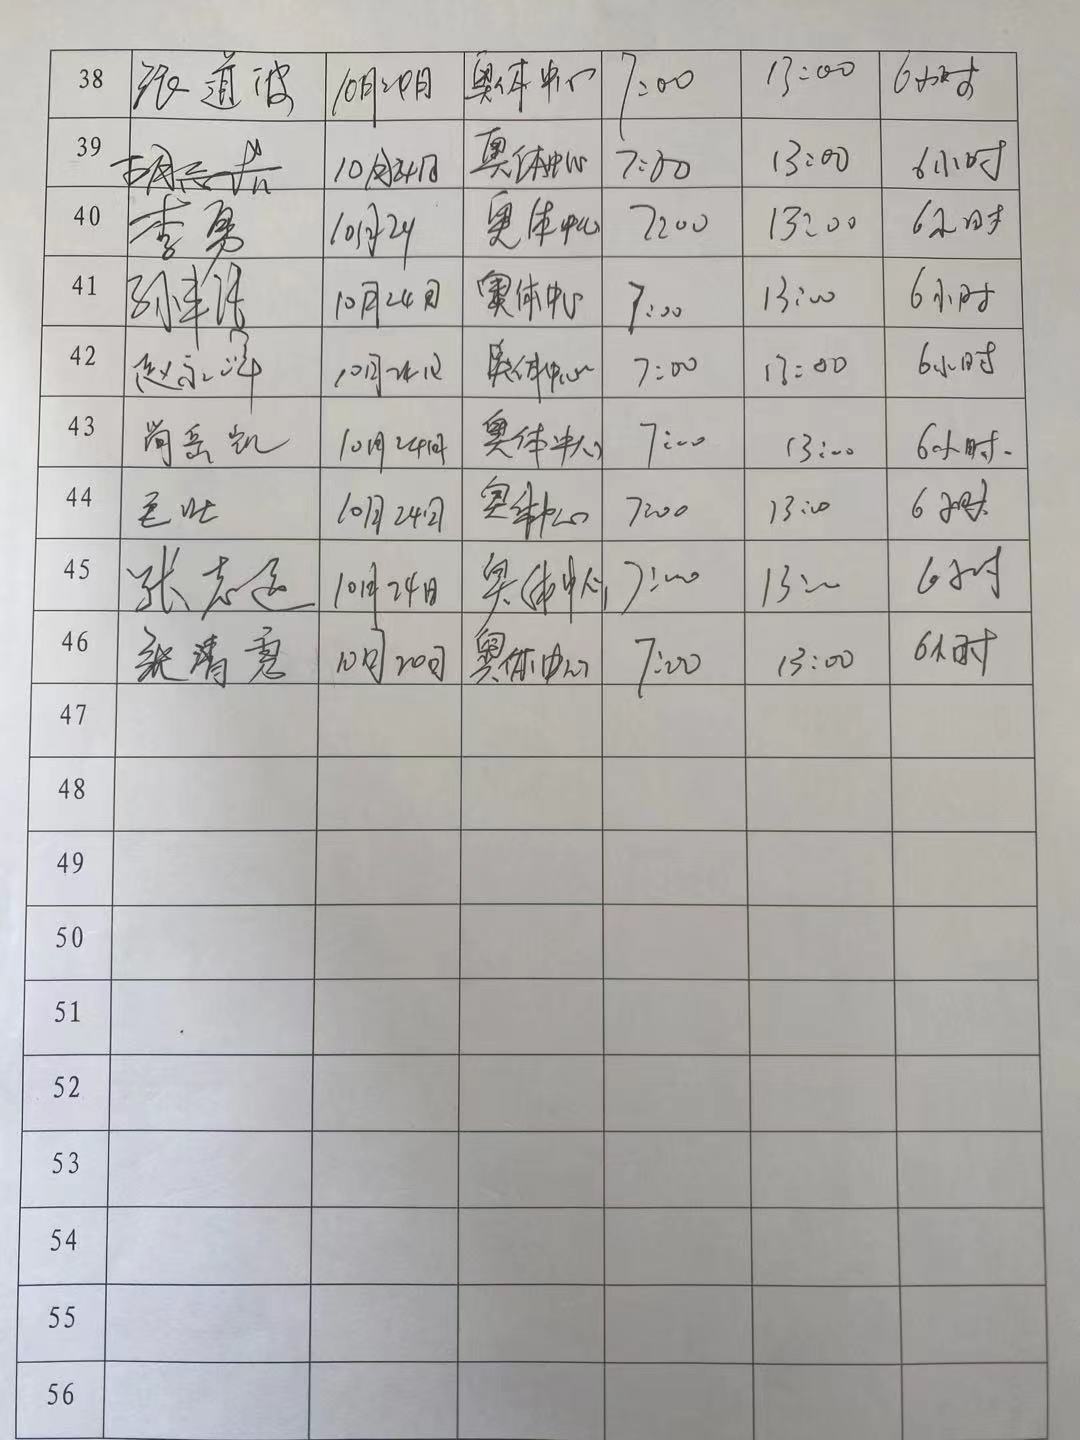 38 张道波 10月24日 奥体中心 7:00 13:00 6小时
39 胡志 10月24日 奥体中心 7:00 13:00 6小时
40 李勇 10月24 奥体中心 7:00 13:00 6小时
41 孙 10月24日 奥体中心 7:00 13:00 6小时
42 赵永祥 10月24日 奥体中心 7:00 13:00 6小时
43 尚岳凯 10月24日 奥体中心 7:00 13:00 6小时
44 10月24日 奥体中心 7:00 13:00 6小时
45 张志远 10月24日 奥体中心 7:00 13:00 6小时
46 清亮 10月20日 奥体中心 7:00 13:00 6小时
47
48
49
50
51
52
53
54
55
56